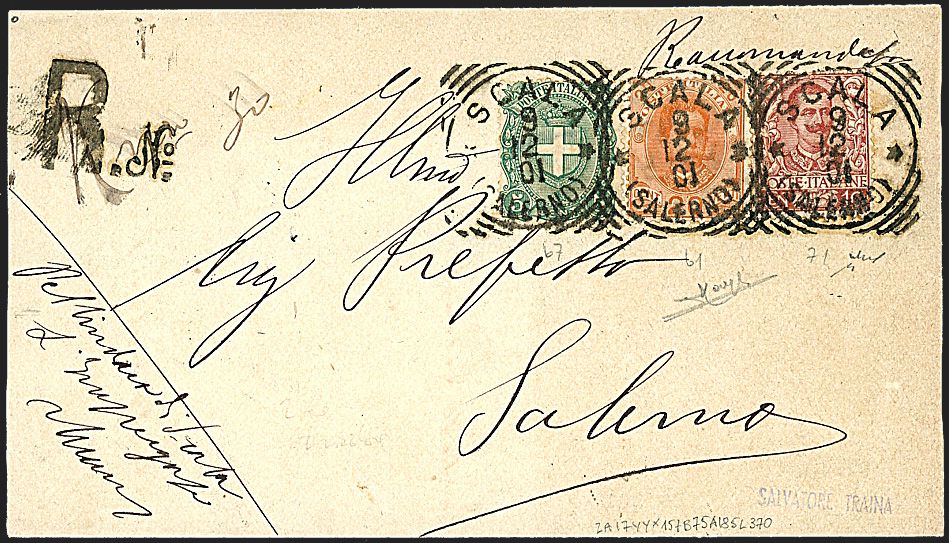 Raccomandata
R. Nº
30
SCALA
9
12
01
(SALERNO)
SCALA
9
12
01
(SALERNO)
SCALA
9
12
01
(SALERNO)
POSTE ITALIANE
67
61
71
Illmo
Sig Prefetto
Salerno
Pel Sindaco di Scala
SALVATORE TRAINA
ZA17YYX157B75A185L370